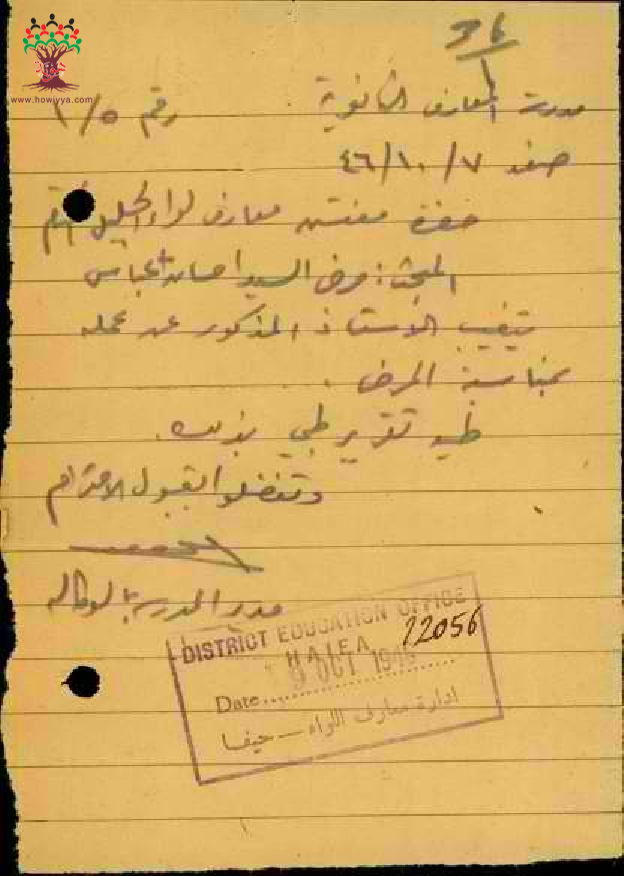 36
www.howiyya.com
مدرسة المعارف الثانوية رقم ١/٥
صفد ٤٦/١٠/٧
حضرة مفتش معارف لواء الجليل
المبحث: مرض السيد احسان عباس
يتغيب الاستاذ المذكور عن عمله
بمناسبة المرض.
طيه تقرير طبي بذلك.
وتفضلوا بقبول الاحترام
مدير المدرسة بالوكالة
DISTRICT EDUCATION OFFICE
HAIFA 22056
9 OCT 1946
Date
ادارة معارف اللواء - حيفا